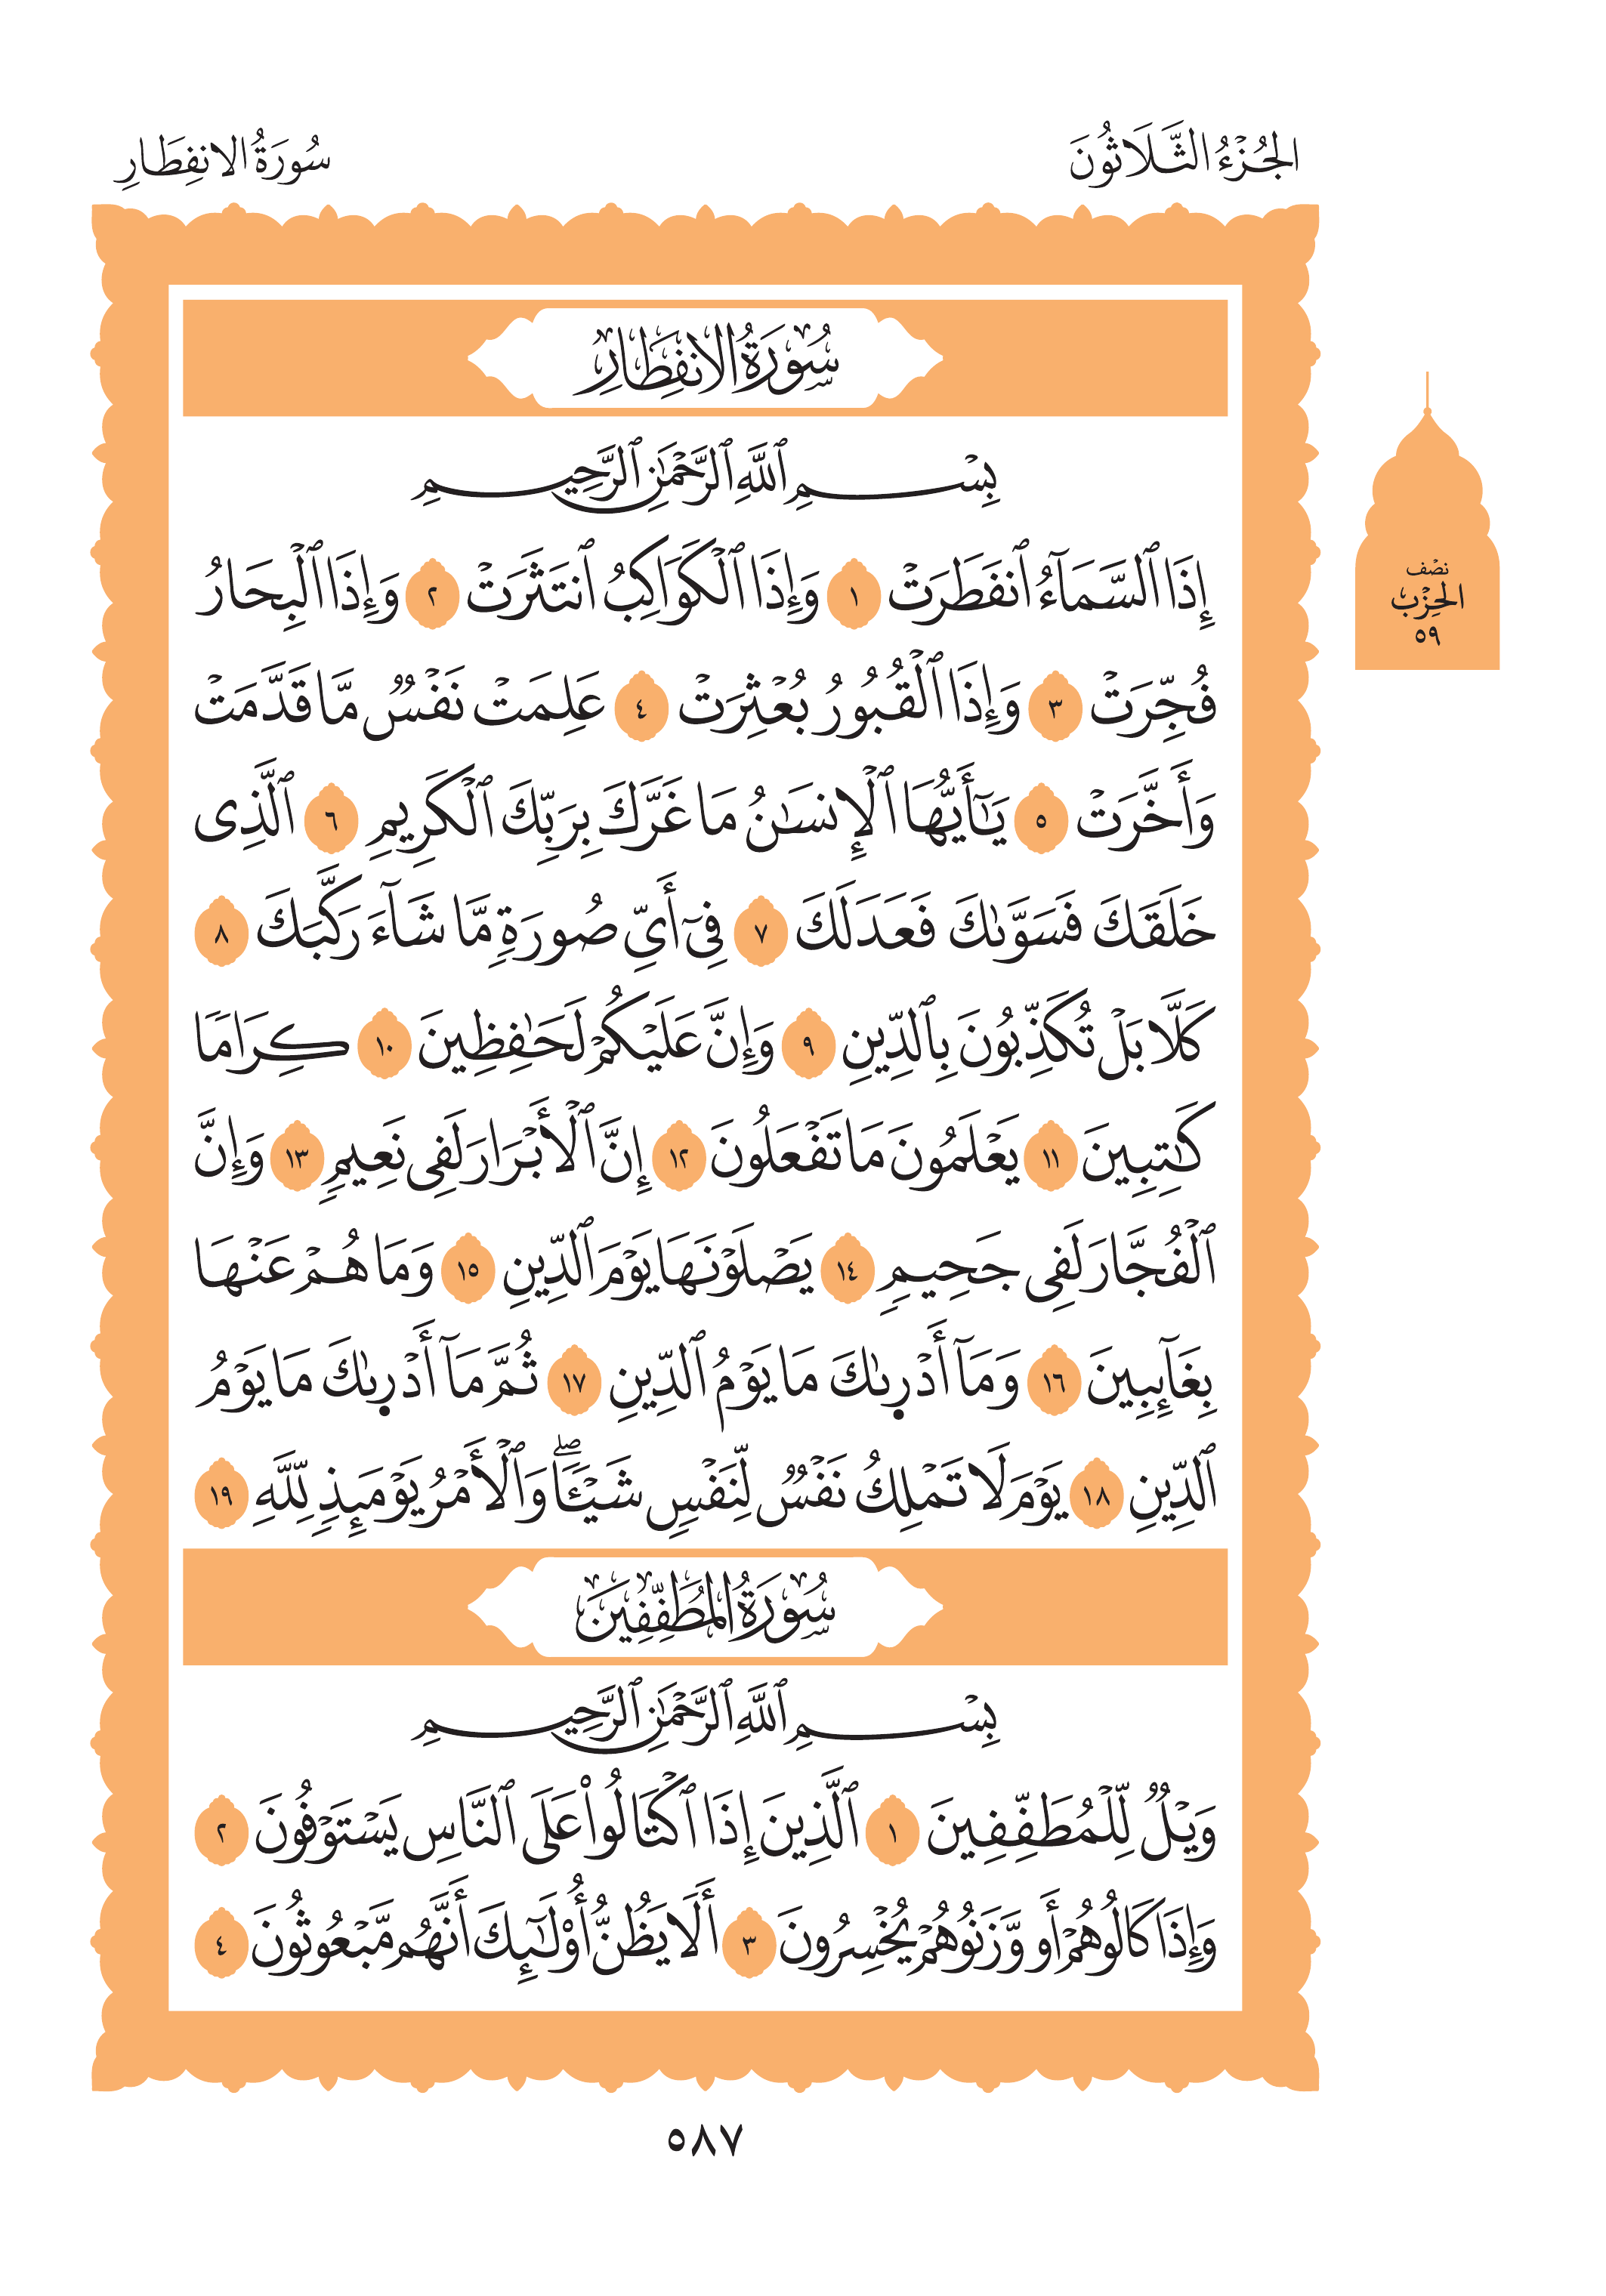 الجُزْءُ الثَّلَاثُونَ
سُورَةُ الانفِطَارِ
سُورَةُ الانفِطَارِ
نصْف
الحِزْب
٥٩
بِسْمِ ٱللَّهِ ٱلرَّحْمَٰنِ ٱلرَّحِيمِ
إِذَا ٱلسَّمَآءُ ٱنفَطَرَتْ ١ وَإِذَا ٱلْكَوَاكِبُ ٱنتَثَرَتْ ٢ وَإِذَا ٱلْبِحَارُ
فُجِّرَتْ ٣ وَإِذَا ٱلْقُبُورُ بُعْثِرَتْ ٤ عَلِمَتْ نَفْسٌ مَّا قَدَّمَتْ
وَأَخَّرَتْ ٥ يَـٰٓأَيُّهَا ٱلْإِنسَـٰنُ مَا غَرَّكَ بِرَبِّكَ ٱلْكَرِيمِ ٦ ٱلَّذِى
خَلَقَكَ فَسَوَّىٰكَ فَعَدَلَكَ ٧ فِىٓ أَىِّ صُورَةٍ مَّا شَآءَ رَكَّبَكَ ٨
كَلَّا بَلْ تُكَذِّبُونَ بِٱلدِّينِ ٩ وَإِنَّ عَلَيْكُمْ لَحَـٰفِظِينَ ١٠ كِرَامًا
كَـٰتِبِينَ ١١ يَعْلَمُونَ مَا تَفْعَلُونَ ١٢ إِنَّ ٱلْأَبْرَارَ لَفِى نَعِيمٍ ١٣ وَإِنَّ
ٱلْفُجَّارَ لَفِى جَحِيمٍ ١٤ يَصْلَوْنَهَا يَوْمَ ٱلدِّينِ ١٥ وَمَا هُمْ عَنْهَا
بِغَآئِبِينَ ١٦ وَمَآ أَدْرىٰكَ مَا يَوْمُ ٱلدِّينِ ١٧ ثُمَّ مَآ أَدْرىٰكَ مَا يَوْمُ
ٱلدِّينِ ١٨ يَوْمَ لَا تَمْلِكُ نَفْسٌ لِّنَفْسٍ شَيْـًٔا ۖ وَٱلْأَمْرُ يَوْمَئِذٍ لِّلَّهِ ١٩
سُورَةُ المُطَفِّفِينَ
بِسْمِ ٱللَّهِ ٱلرَّحْمَٰنِ ٱلرَّحِيمِ
وَيْلٌ لِّلْمُطَفِّفِينَ ١ ٱلَّذِينَ إِذَا ٱكْتَالُوا۟ عَلَى ٱلنَّاسِ يَسْتَوْفُونَ ٢
وَإِذَا كَالُوهُمْ أَو وَّزَنُوهُمْ يُخْسِرُونَ ٣ أَلَا يَظُنُّ أُو۟لَـٰٓئِكَ أَنَّهُم مَّبْعُوثُونَ ٤
٥٨٧